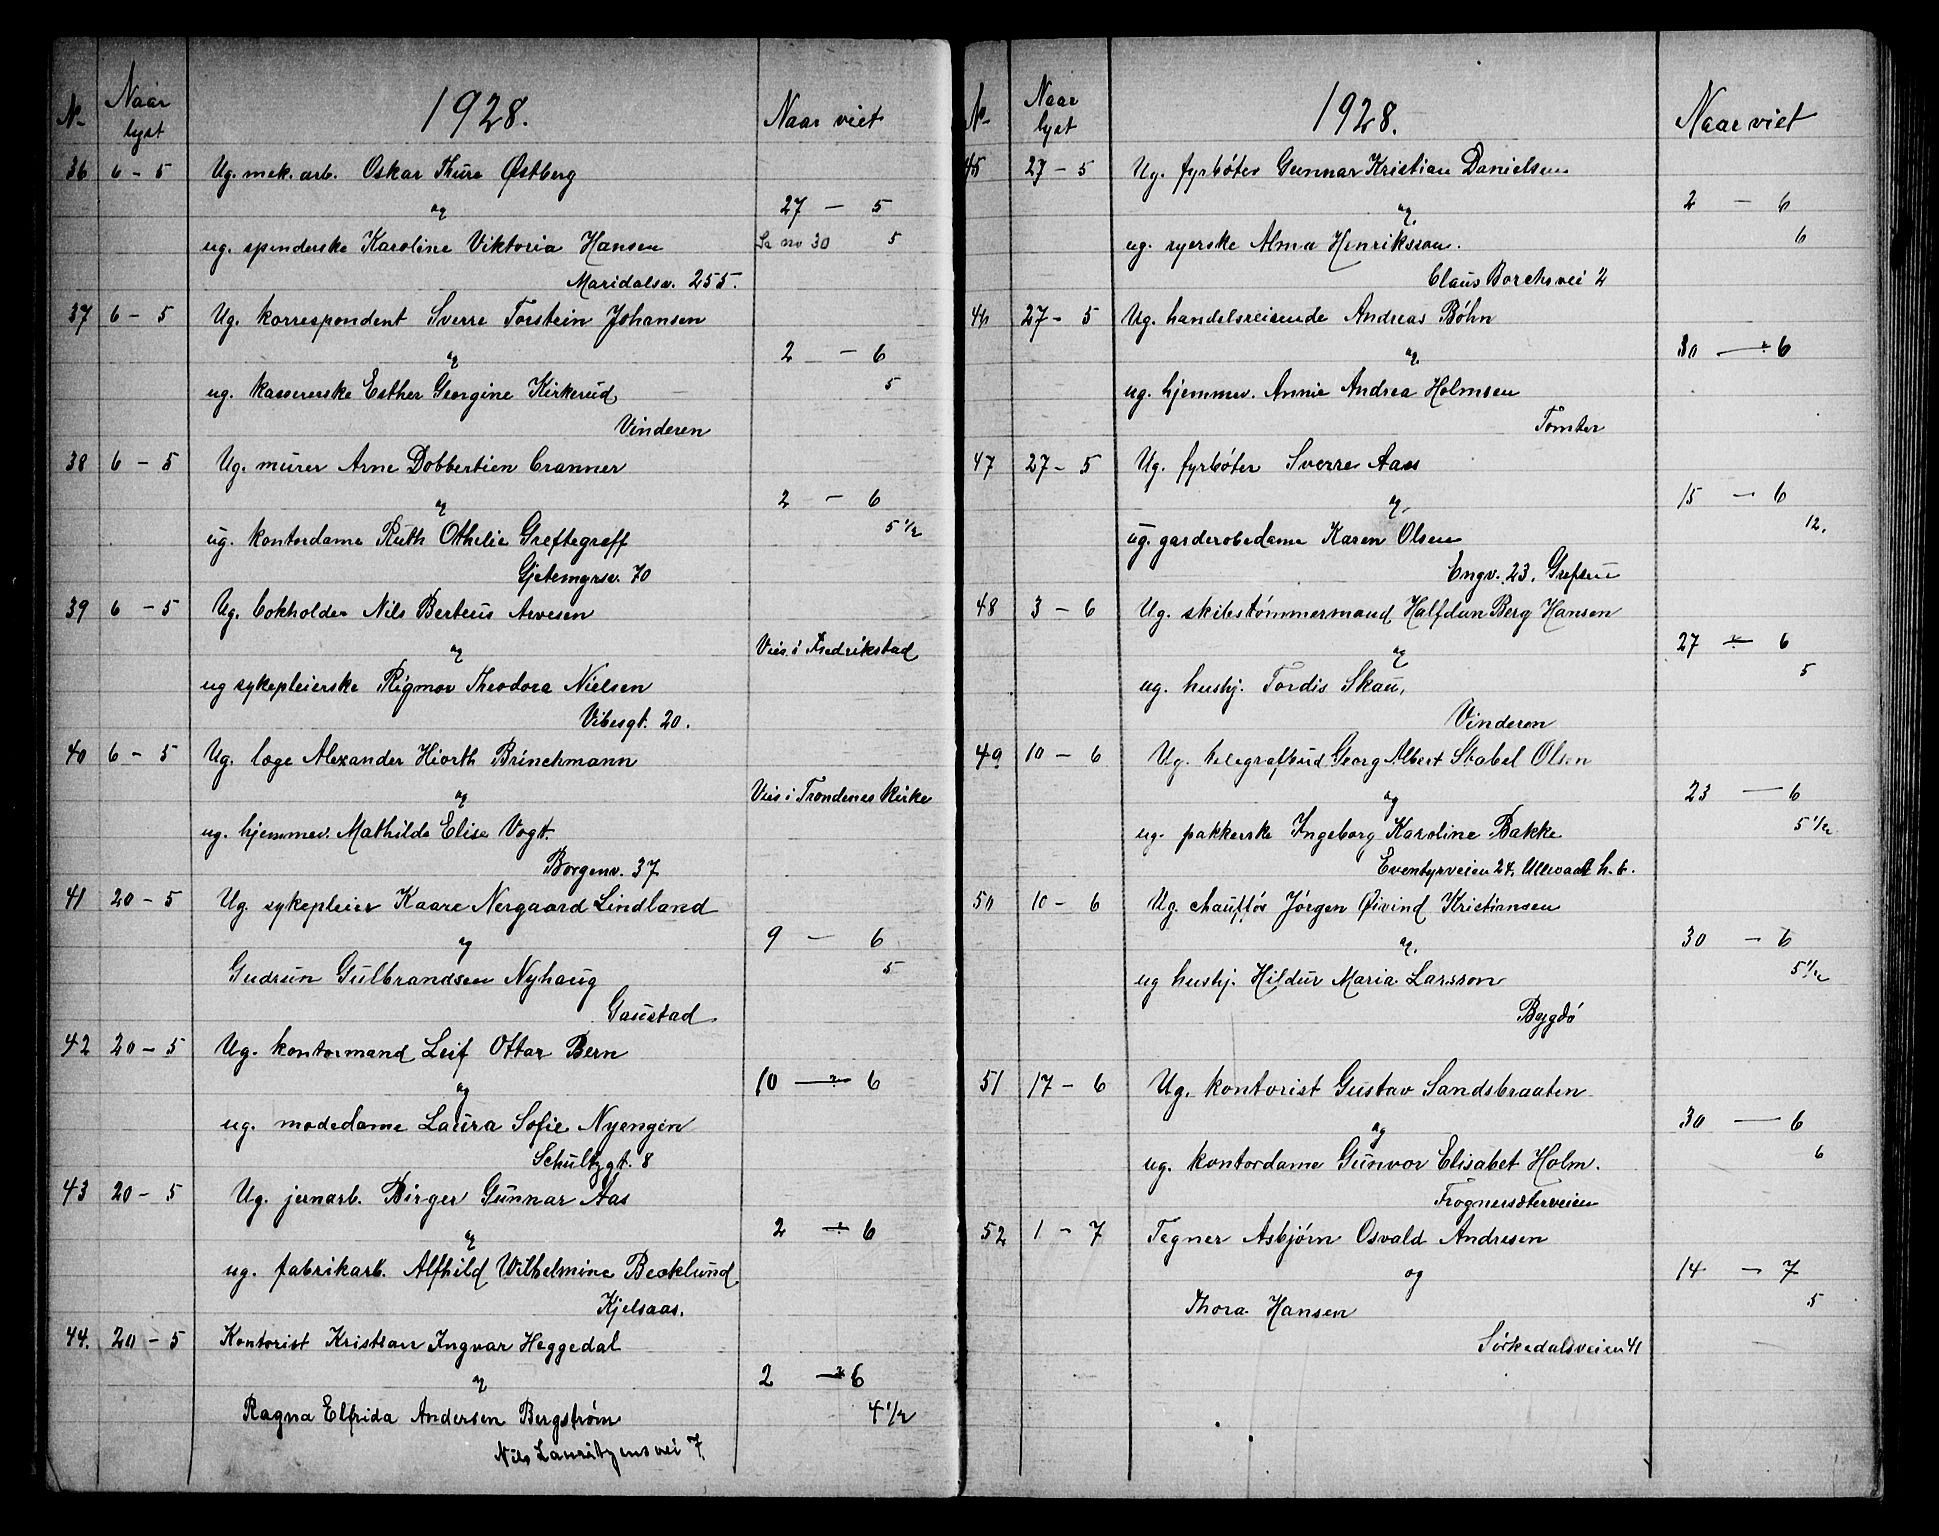 N-
Naar lyst
1928.
Naar viet
36 6 - 5 Ug. mek. arb. Oskar Thure Østberg
og 27 - 5
ug. spinderske Karoline Viktoria Hansen Se no 30 5
Maridalsv. 255.
37 6 - 5 Ug. korrespondent Sverre Torstein Johansen
og 2 - 6
ug. kassererske Esther Georgine Kirkerud 5
Vinderen
38 6 - 5 Ug. murer Arne Dobbertien Cranner
og 2 - 6
ug. kontordame Ruth Othilie Greftegreff 5 1/2
Gjetemyrsv. 70
39 6 - 5 Ug. bokholder Nils Berteus Arvesen
og Vies i Fredrikstad
ug sykepleierske Rigmor Theodora Nielsen
Vibesgt. 20.
40 6 - 5 Ug. læge Alexander Hiorth Brinchmann
og Vies i Trondenes Kirke
ug. hjemmev. Mathilde Elise Vogt.
Borgenv. 37
41 20 - 5 Ug. sykepleier Kaare Nergaard Lindland
og 9 - 6
Gudrun Gulbrandsen Nyhaug 5
Gaustad
42 20 - 5 Ug. kontormand Leif Ottar Bern
og 10 - 6
ug. modedame Laura Sofie Nyengin
Schultzgt. 8
43 20 - 5 Ug. jernarb. Birger Gunnar Aas
og 2 - 6
ug. fabrikarb. Alfhild Wilhelmine Becklund
Kjelsaas.
44. 20 - 5 Kontorist Kristian Ingvar Heggedal
og 2 - 6
Ragna Elfrida Andersen Bergstrøm 4 1/2
Nils Lauritzens vei 7
N-
Naar lyst
1928.
Naar viet
45 27 - 5 Ug. fyrbøter Gunnar Kristian Danielsen
og 2 - 6
ug. syerske Alma Henriksson. 6
Claus Borchsvei 2
46 27 - 5 Ug. handelsreisende Andreas Bøhn
og 30 - 6
ug. hjemmev. Annie Andrea Holmsen
Tomter
47 27 - 5 Ug. fyrbøter Sverre Aass
og 15 - 6
ug. garderobedame Karen Olsen 12.
Engv. 23. Grefsen
48 3 - 6 Ug. skibstømmermand Halfdan Berg Hansen
og 27 - 6
ug. hushj. Tordis Skau, 5
Vinderen
49 10 - 6 Ug. telegrafbud Georg Albert Stabel Olsen
og 23 - 6
ug. pakkerske Ingeborg Karoline Bakke 5 1/2
Eventyrveien 24, Ullevaal h. b.
50 10 - 6 Ug. chauffør Jørgen Øivind Kristiansen
og 30 - 6
ug hushj. Hildur Maria Larsson 5 1/2
Bygdø
51 17 - 6 Ug. kontorist Gustav Sandsbraaten
og 30 - 6
ug. kontordame Gunvor Elisabet Holm. 6
Frognersæterveien
52 1 - 7 Tegner Asbjørn Osvald Andresen
og 14 - 7
Thora Hansen 5
Sørkedalsveien 41